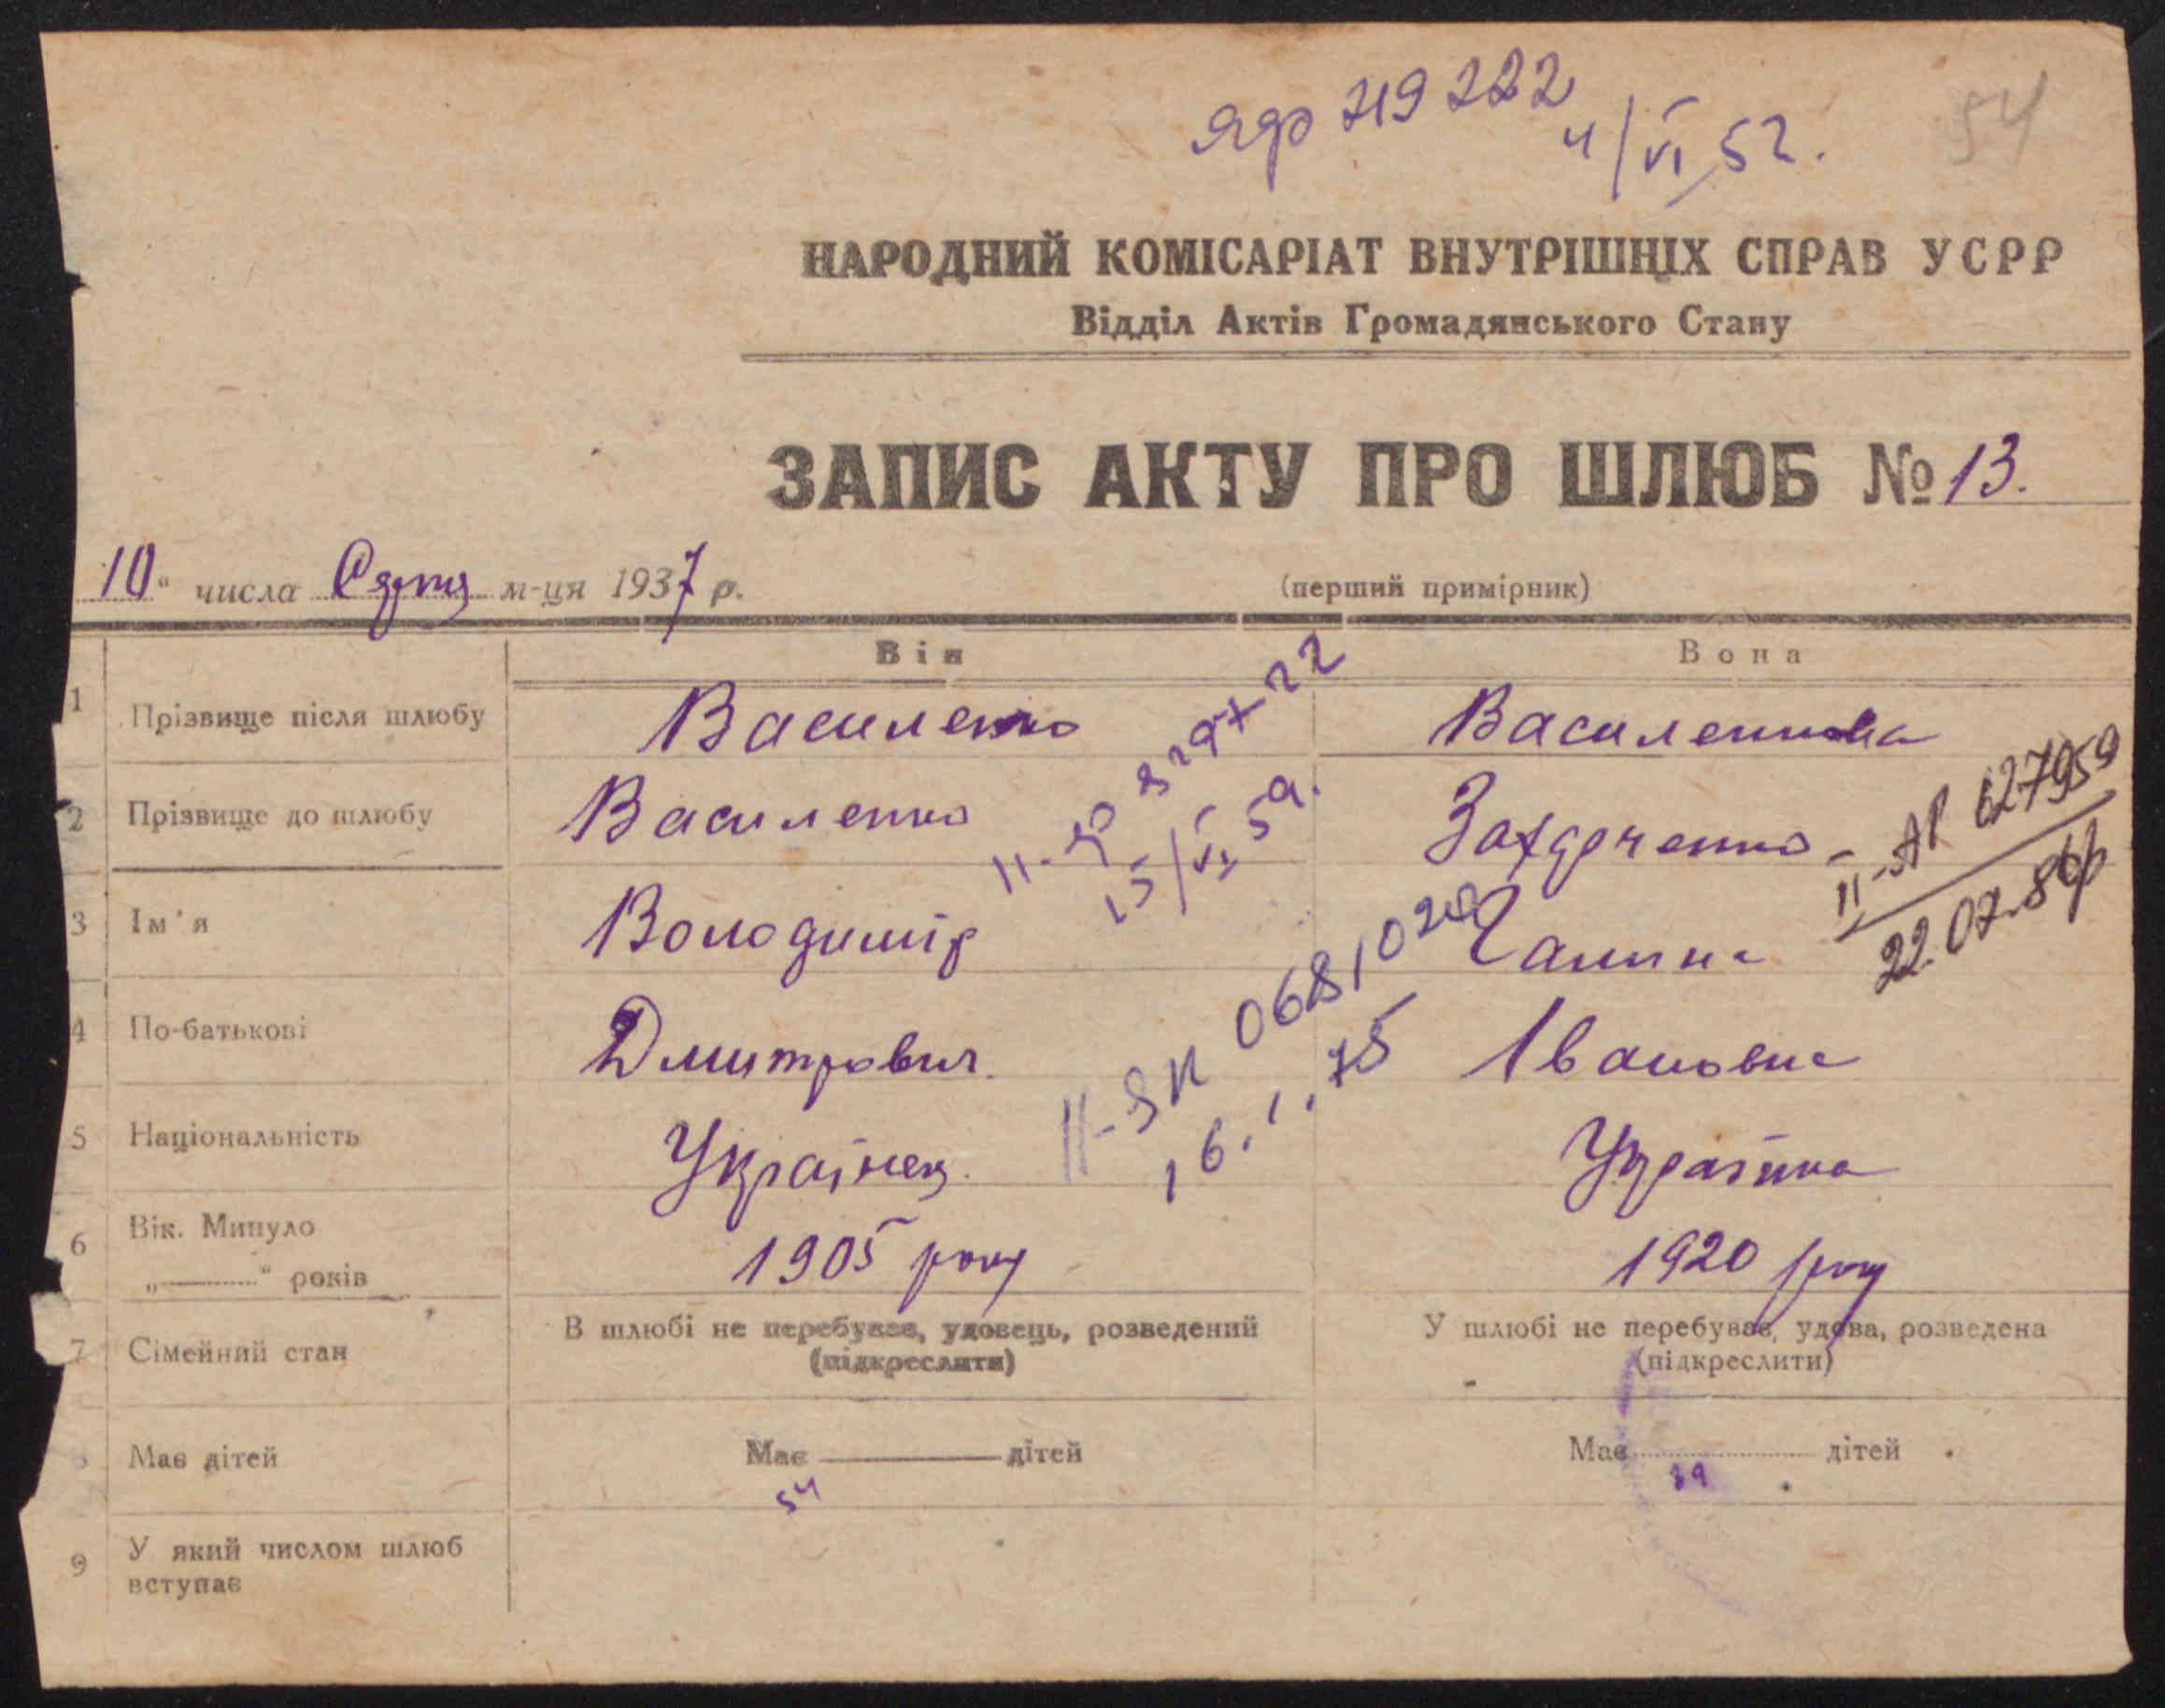 719222
4/VI 52.
54
НАРОДНИЙ КОМІСАРІАТ ВНУТРІШНІХ СПРАВ УСРР
Відділ Актів Громадянського Стану
ЗАПИС АКТУ ПРО ШЛЮБ № 13.
10" числа Серпня м-ця 1937 р.
(перший примірник)
Він Вона
1 Прізвище після шлюбу Василенко Василенкова
2 Прізвище до шлюбу Василенко
15/VI 59.
II-АР 627959
22.07.86р
3 Ім'я Володимір Галина
4 По-батькові Дмитрович. Івановна
II-ЯК 068102
16.1.75
5 Національність Українец. Українка
6 Вік. Минуло „ " років 1905 року 1920 року
7 Сімейний стан В шлюбі не перебував, удовець, розведений (підкреслити) У шлюбі не перебував, удова, розведена (підкреслити)
8 Має дітей Має дітей Має дітей
54
9 У який числом шлюб вступає